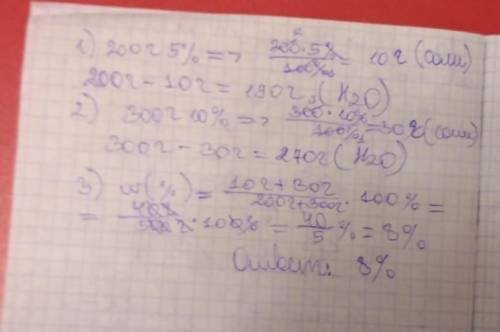 1) 200г 5% => 200·5%/100% = 10г (соли)
200г - 10г = 190г (H2O)
2) 300г 10% => 300·10%/100% = 30г (соли)
300г - 30г = 270г (H2O)
3) w(%) = 10г+30г/200г+300г · 100% =
= 40г/500г · 100% = 40/5 % = 8%
Ответ: 8%